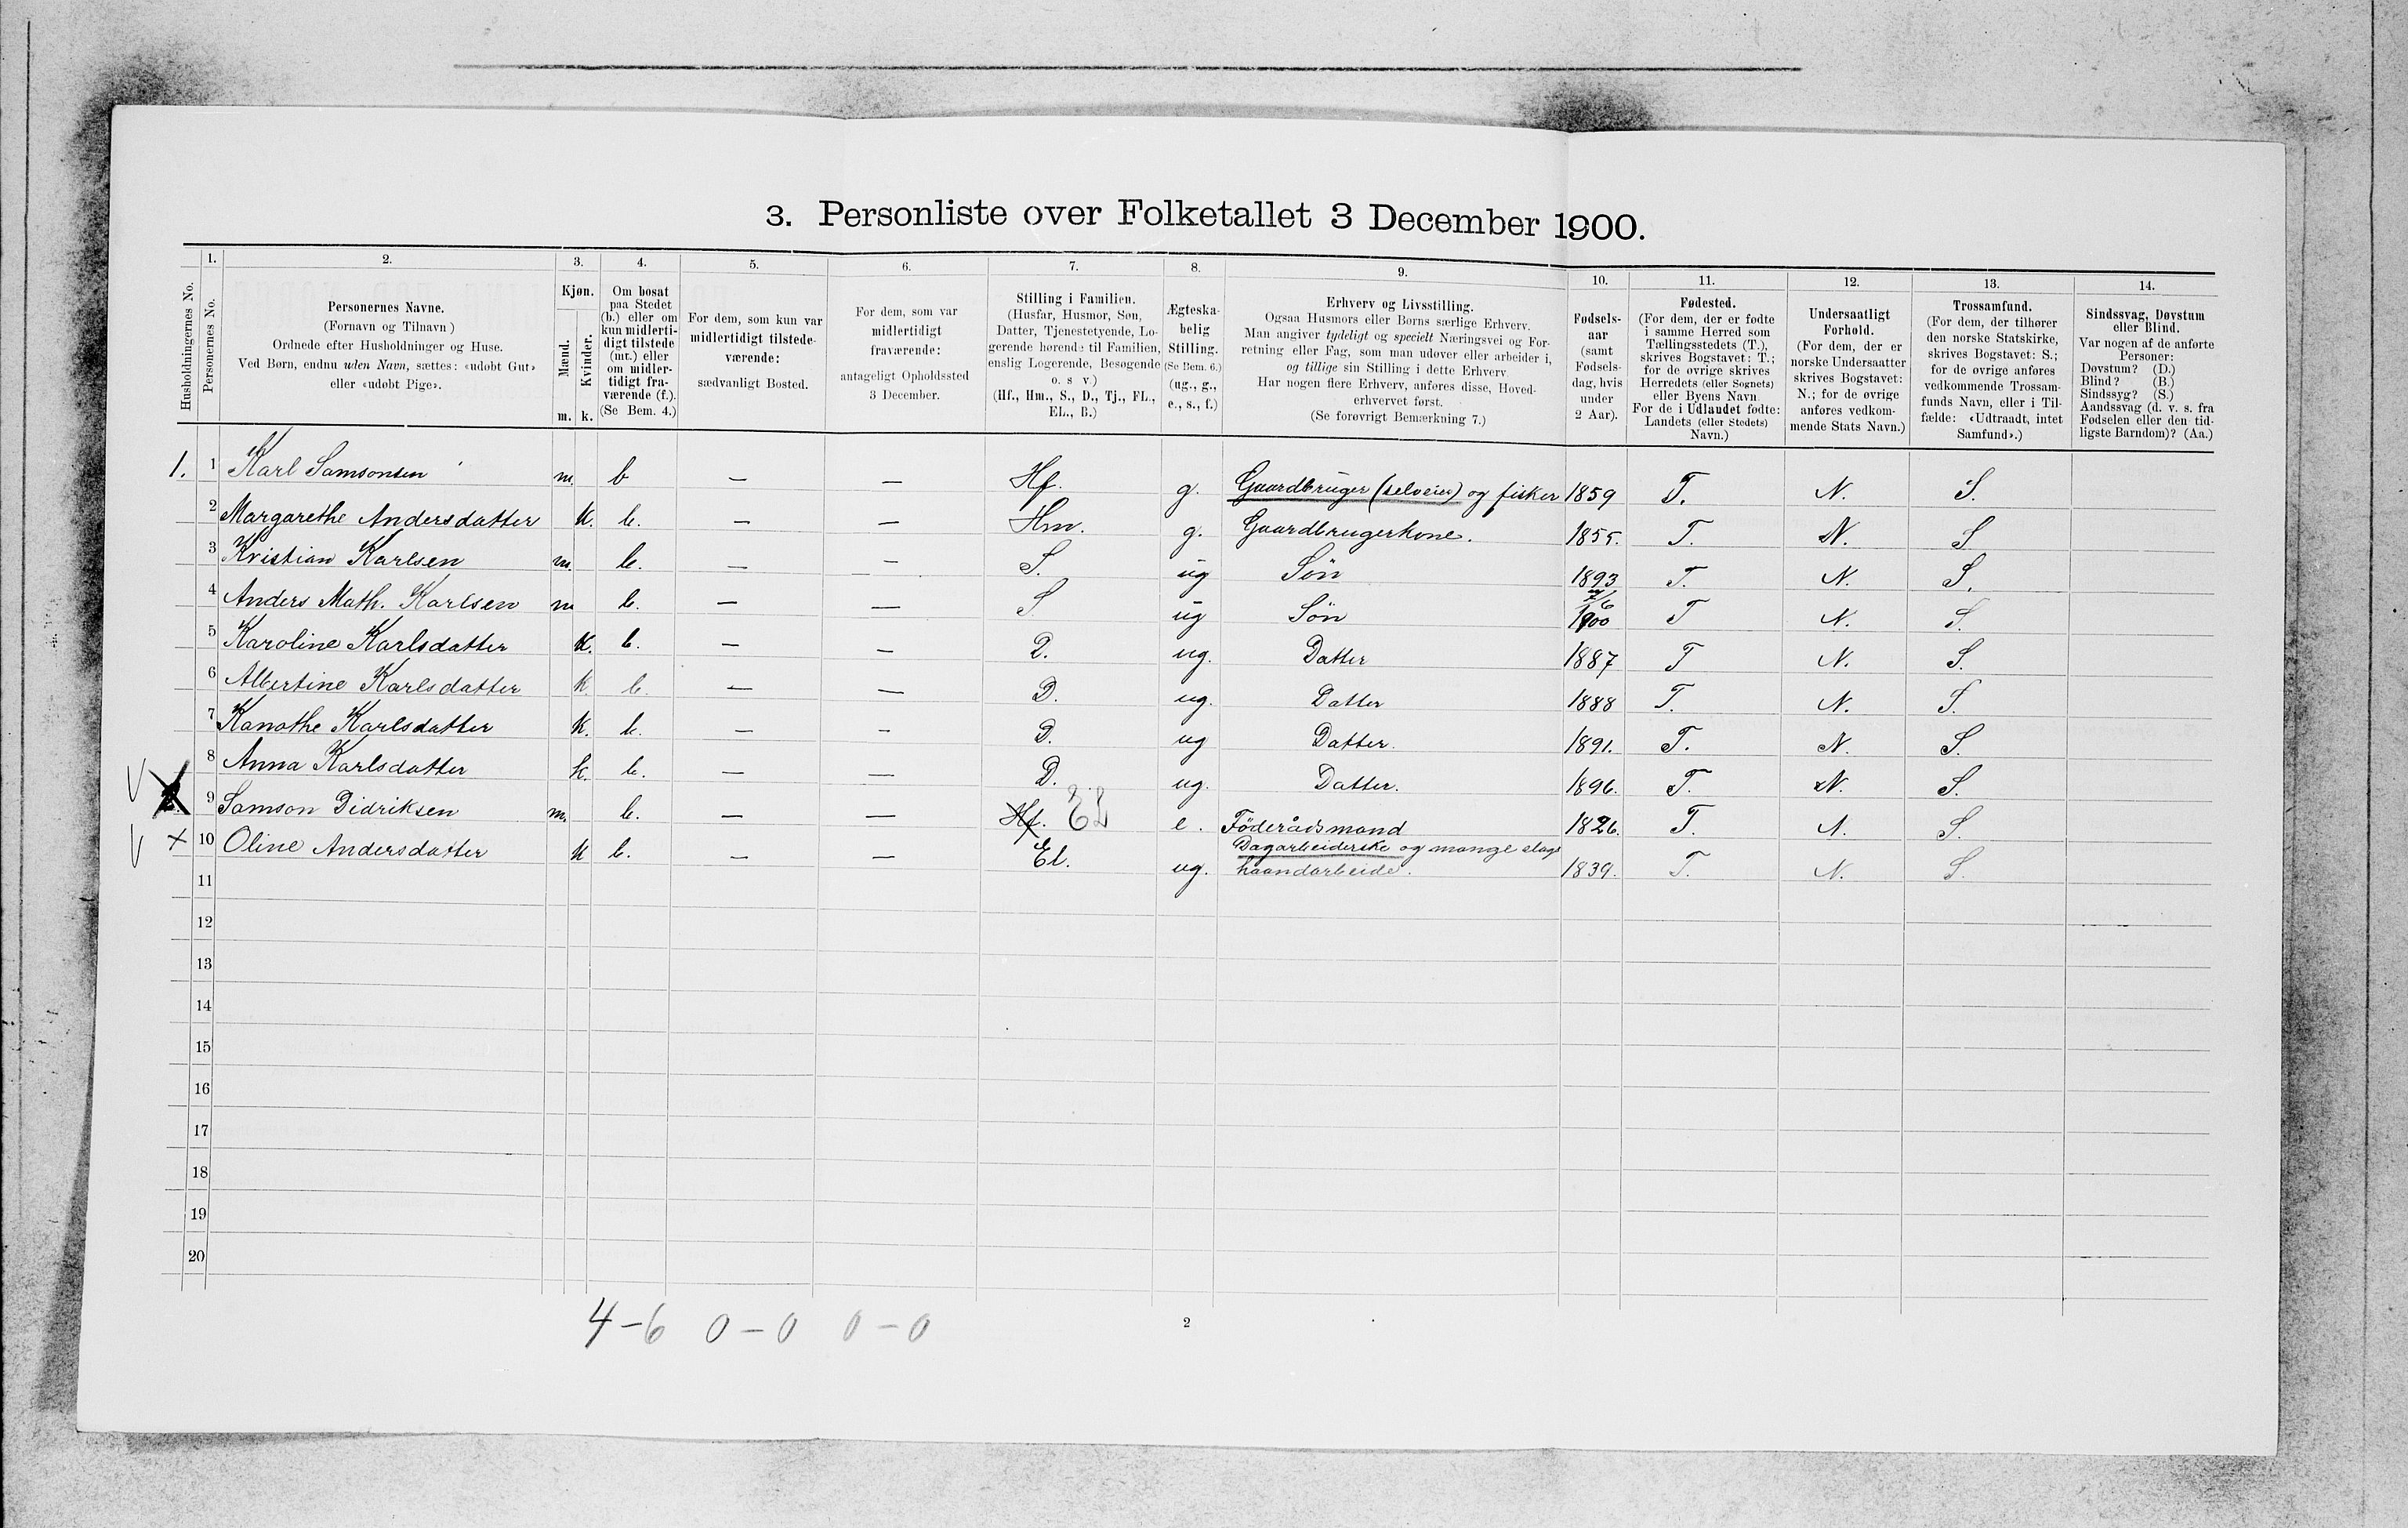 3. Personliste over Folketallet 3 December 1900.
1. 2. 3. 4. 5. 6. 7. 8. 9. 10. 11. 12. 13. 14.
Husholdningernes No.
Personernes No.
Personernes Navne.
(Fornavn og Tilnavn )
Ordnede efter Husholdninger og Huse.
Ved Børn, endnu uden Navn, sættes: «udøbt Gut»
eller «udøbt Pige».
Kjøn.
Mænd.
Kvinder.
m. k.
Om bosat
paa Stedet
(b.) eller om
kun midlerti-
digt tilstede
(mt.) eller
om midler-
tidigt fra-
værende (f.).
(Se Bem. 4.)
For dem, som kun var
midlertidigt tilstede-
værende:
sædvanligt Bosted.
For dem, som var
midlertidigt
fraværende:
antageligt Opholdssted
3 December.
Stilling i Familien.
(Husfar, Husmor, Søn,
Datter, Tjenestetyende, Lo-
gerende hørende til Familien,
enslig Logerende, Besøgende
o. s v.)
(Hf., Hm., S., D., Tj., FL.,
EL., B.)
Ægteska-
belig
Stilling.
(Se Bem. 6.)
(ug., g.,
e., s., f.)
Erhverv og Livsstilling.
Ogsaa Husmors eller Børns særlige Erhverv.
Man angiver tydeligt og specielt Næringsvei og For-
retning eller Fag, som man udøver eller arbeider i,
og tillige sin Stilling i dette Erhverv.
Har nogen flere Erhverv, anføres disse, Hoved-
erhvervet først.
(Se forøvrigt Bemærkning 7.)
Fødsels-
aar
(samt
Fødsels-
dag, hvis
under
2 Aar).
Fødested.
(For dem, der er fødte
i samme Herred som
Tællingsstedets (T.),
skrives Bogstavet: T.;
for de øvrige skrives
Herredets (eller Sognets)
eller Byens Navn
For de i Udlandet fødte:
Landets (eller Stedets)
Navn.)
Undersaatligt
Forhold.
(For dem, der er
norske Undersaatter
skrives Bogstavet:
N.; for de øvrige
anføres vedkom-
mende Stats Navn.)
Trossamfund.
(For dem, der tilhører
den norske Statskirke,
skrives Bogstavet: S.;
for de øvrige anføres
vedkommende Trossam-
funds Navn, eller i Til-
fælde: «Udtraadt, intet
Samfund».)
Sindssvag, Døvstum
eller Blind.
Var nogen af de anførte
Personer:
Døvstum? (D.)
Blind? (B.)
Sindssyg? (S.)
Aandssvag (d. v. s. fra
Fødselen eller den tid-
ligste Barndom)? (Aa.)
1. 1 Karl Samsonsen m. b — — Hf. g. Gaardbruger (selveier) og fisker 1859 T. N. S.
2 Margarethe Andersdatter k. b. — — Hm. g. Gaardbrugerkone. 1855. T. N. S
3 Kristian Karlsen m. b. — — S. ug Søn 1893 T. N. S.
4 Anders Math. Karlsen m b. — — S ug Søn 1900 T N. S.
5 Karoline Karlsdatter k. b. — — D. ug. Datter 1887 T N. S.
6 Albertine Karlsdatter k b. — — D. ug. Datter 1888 T. N. S.
7 Kanothe Karlsdatter k. b. — — D. ug Datter. 1891. T. N. S.
8 Anna Karlsdatter k. b. — — D. ug. Datter. 1896. T. N. S.
9 Samson Didriksen m. b. — — Hf. EL e. Föderådsmand 1826. T. N. S.
10 Oline Andersdatter k b. — — El. ug. Dagarbeiderske og mange slags
haandarbeide. 1839. T. N. S.
11
12
13
14
15
16
17
18
19
20
4-6 0-0 0-0
2